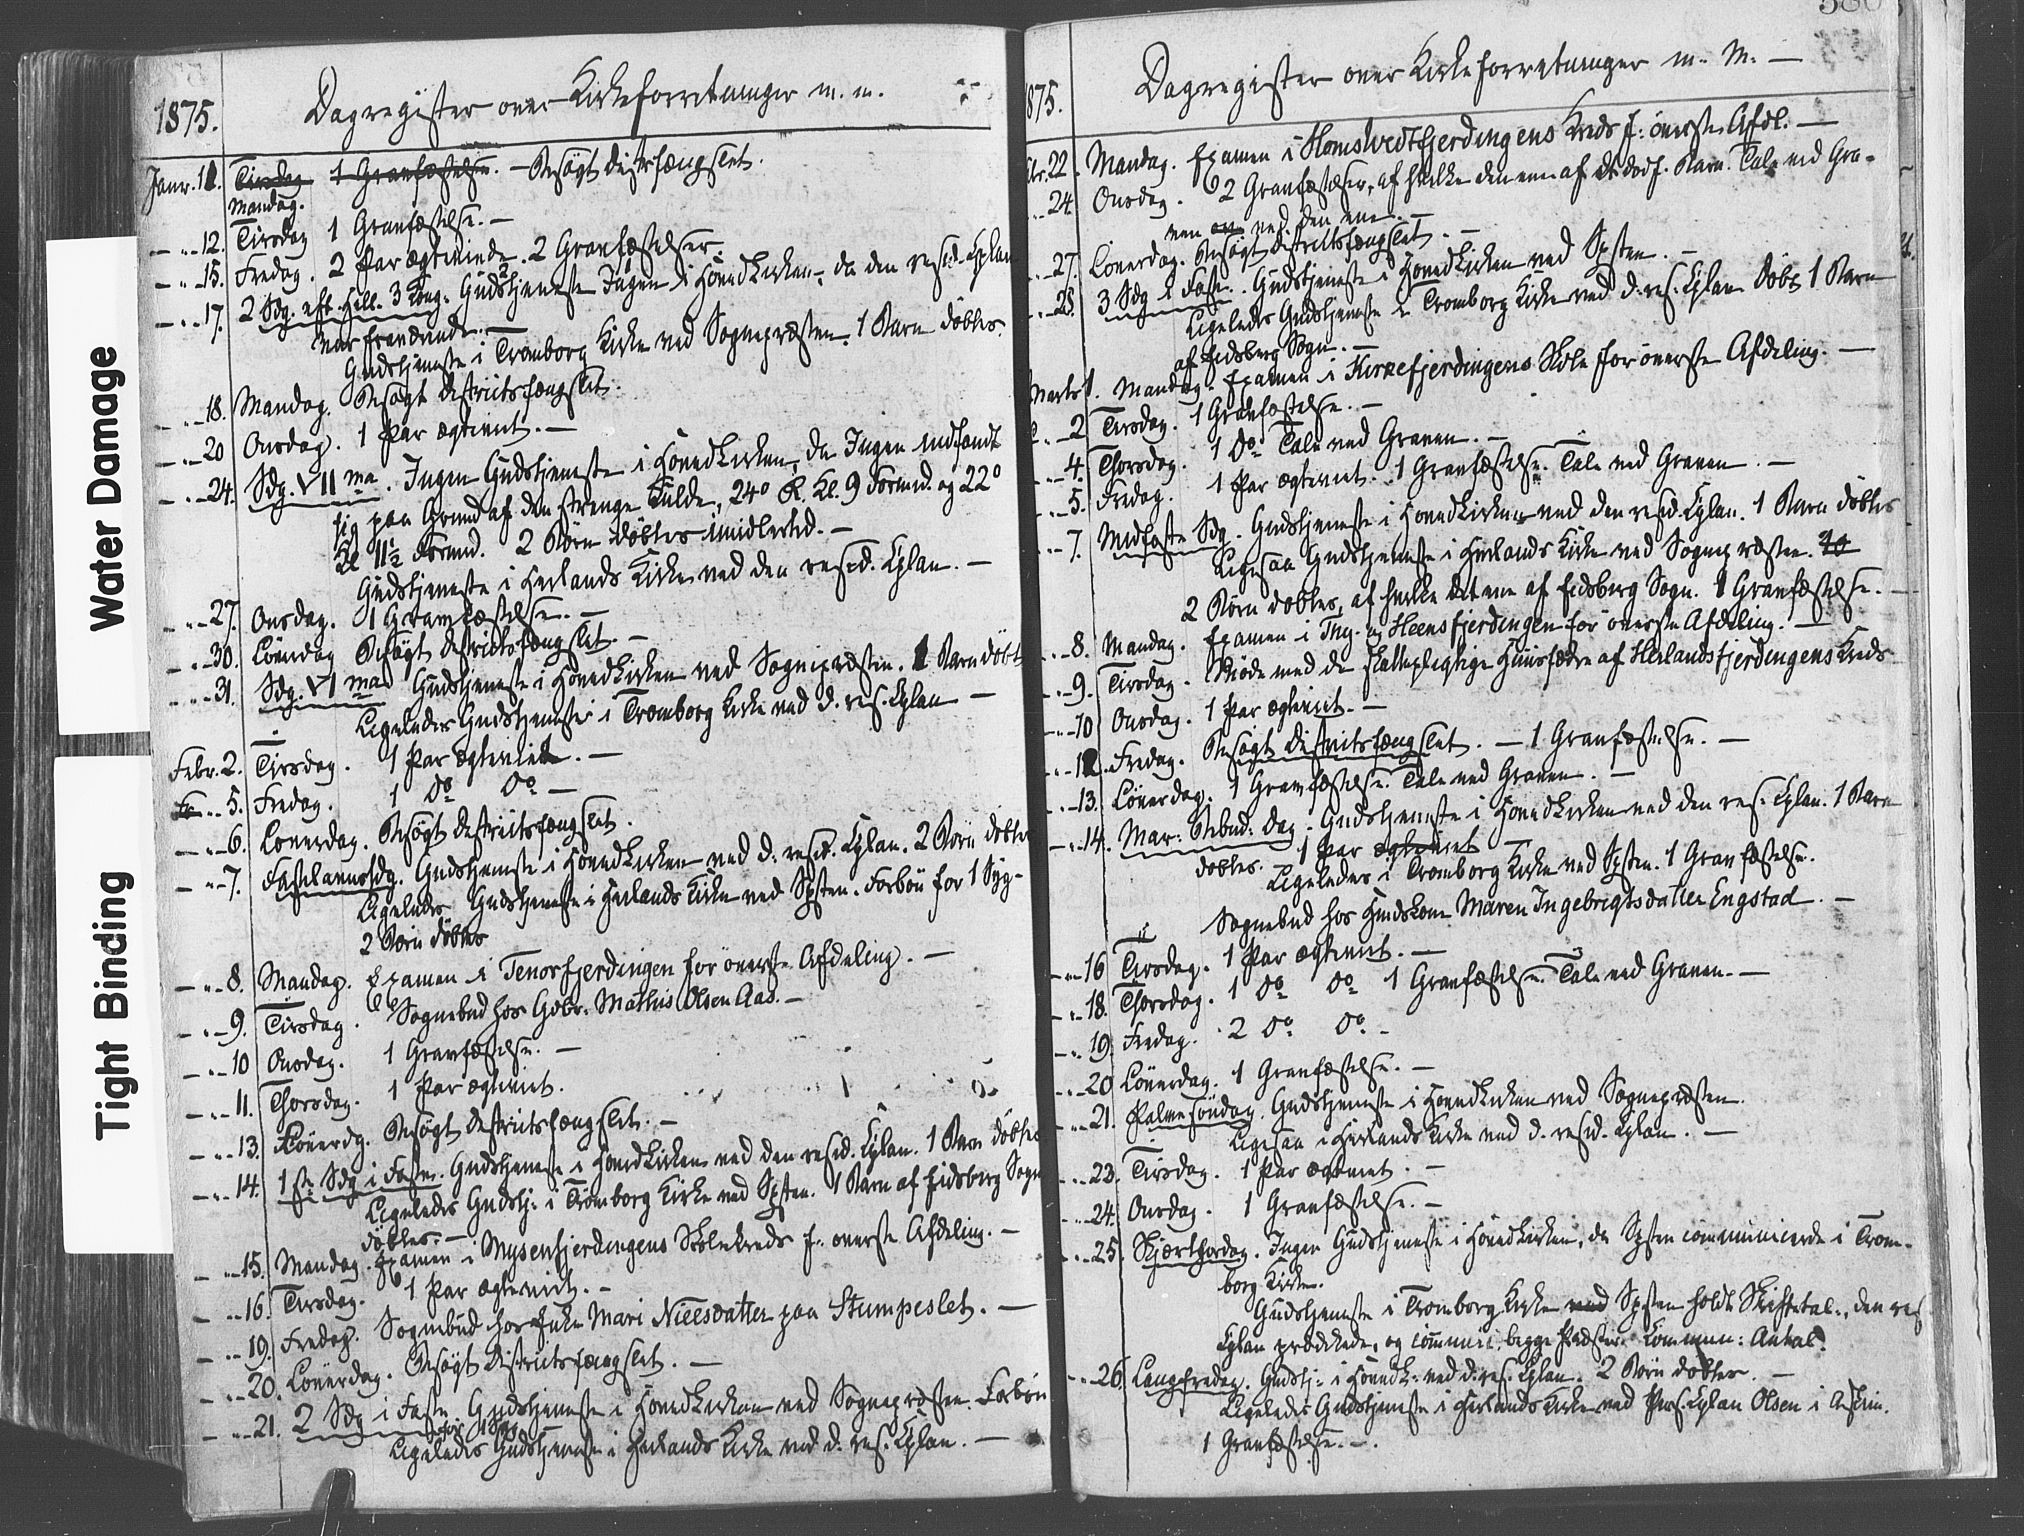 Water Damage
Tight Binding
1875. Dagregister over Kirkeforretninger m. m.
Janr. 11. Tirsdag 1 Gravfæstelse. – Besøgt Distrfængslet.
Mandag.
– " – 12. Tirsdag 1 Gravfæstelse. –
– " – 15. Fredag. 2 Par ægteviede. 2 Gravfæstelser.
– " – 17. 2 Sdg. eft. Hell. 3 Kong. Gudstjeneste Ingen i Hovedkirken, da den resid. Cplan
var fraværende. –
Gudstjeneste i Tromborg Kirke ved Sognepræsten. 1 Barn døbtes.
– " – 18. Mandag. Besøgt Districtsfængslet.
– " – 20 Onsdag. 1 Par ægteviet. –
– " – 24. Sdg. VII ma. Ingen Gudstjeneste i Hovedkirken, da Ingen indfandt
sig paa Grund af den strenge Kulde, 24° R. Kl. 9 Formd. og 22°
Kl 11½ Formd. 2 Børn døbtes imidlertid. –
Gudstjeneste i Herlands Kirke ved den resid. Cplan. –
– " – 27. Onsdag. 1 Gravfæstelse. –
– " – 30. Løverdag Besøgt Districtsfængslet. –
– " – 31. Sdg. VI ma Gudstjeneste i Hovedkirken ved Sognepræsten. 1 Barn døbt
Ligeledes Gudstjeneste i Tromborg Kirke ved d. res. Cplan –
Febr. 2. Tirsdag. 1 Par ægteviet. –
" – 5. Fredag. 1 do do –
– " – 6. Løverdag. Besøgt Districtsfængslet.
– " – 7. Fastelavnssdg. Gudstjeneste i Hovedkirken ved d. resid. Cplan. 2 Børn døbtes
Ligeledes Gudstjeneste i Herlands Kirke ved Spsten. Forbøn for 1 Syg –
2 Børn døbtes
– " – 8. Mandag. Examen i Tenorfjerdingen for øverste Afdeling. –
– " – 9. Tirsdag. Sognebud hos Gdbr. Mathis Olsen Aas. –
– " – 10 Onsdag. 1 Gravfæstelse. –
– " – 11. Thorsdag. 1 Par ægteviet.
– " – 13. Løverdg. Besøgt Districtsfængslet. –
– " – 14. 1ste Sdg i Faste. Gudstjeneste i Hovedkirken ved den resid. Cplan. 1 Barn døbtes
Ligeledes Gudstj: i Tromborg Kirke ved Spsten. 1 Barn af Eidsberg Sogn
døbtes. –
– " – 15. Mandag. Examen i Mysenfjerdingens Skolekreds f. øverste Afdeling. –
– " – 16. Tirsdag. 1 Par ægteviet. –
– " – 19. Fredag. Sognebud hos Enke Mari Nilsdatter paa Stumpeslet. –
– " – 20. Løverdag. Besøgt Districtsfængslet. –
– " – 21. 2 Sdg i Faste. Gudstjeneste i Hovedkirken ved Sognepræsten. Forbøn
for 1 Syg.
Ligeledes Gudstjeneste i Herlands Kirke ved d. res. Cplan. –
1875. Dagregister over Kirkeforretninger m. m. –
Febr. 22. Mandag. Examen i Homstvedtfjerdingens Kreds f: øverste Afdl. –
– " – 24. Onsdag. 2 Gravfæstelser, af hvilke den ene af et dødf. Barn. Tale ved Gra-
ven ved den ene. –
– " – 27. Løverdag. Besøgt Districtsfængslet. –
– " – 28. 3 Sdg i Faste. Gudstjeneste i Hovedkirken ved Spsten. –
Ligeledes Gudstjeneste i Tromborg Kirke ved d. res. Cplan. Døbt 1 Barn
af Eidsberg Sogn. –
Marts 1. Mandag. Examen i Kirkefjerdingens Skole for øverste Afdeling. –
" – 2 Tirsdag. 1 Gravfæstelse. –
– " – 4. Thorsdag. 1 do Tale ved Graven. –
– " – 5. Fredag. 1 Par ægteviet. 1 Gravfæstelse. Tale ved Graven. –
– " – 7. Midfaste Sdg. Gudstjeneste i Hovedkirken ved den resid. Cplan. 1 Barn døbtes
Ligesaa Gudstjeneste i Herlands Kirke ved Sognepræsten.
2 Børn døbtes, af hvilke det ene af Eidsberg Sogn. 1 Gravfæstelse. –
– " – 8. Mandag. Examen i Thy- og Heensfjerdingen for øverste Afdeling. –
– " – 9. Tirsdag. Møde med de skattepligtige Huusfædre af Herlandsfjerdingens Kreds
– " – 10 Onsdag. 1 Par ægteviet. –
– " – 12. Fredag. Besøgt Districtsfængslet. – 1 Gravfæstelse. –
– " – 13. Løverdag. 1 Gravfæstelse. Tale ved Graven. –
– " – 14. Mar: Bebud: Dag. Gudstjeneste i Hovedkirken ved den res. Cplan. 1 Barn
døbtes. – 1 Par ægteviet –
Ligeledes i Tromborg Kirke ved Spsten. 1 Gravfæstelse.
Sognebud hos Huuskone Maren Ingebrigtsdatter Engstad. –
– " – 16 Tirsdag. 1 Par ægteviet. –
– " – 18. Thorsdag. 1 do do 1 Gravfæstelse. Tale ved Graven. –
– " – 19. Fredag. 2 do do –
– " – 20 Løverdag. 1 Gravfæstelse. –
– " – 21. Palmesøndag. Gudstjeneste i Hovedkirken ved Sognepræsten.
Ligesaa i Herlands Kirke ved d. resid. Cplan. –
– " – 23. Tirsdag. 1 Par ægteviet. –
– " – 24. Onsdag. 1 Gravfæstelse. –
– " – 25. Skjærthorsdag. Ingen Gudstjeneste i Hovedkirken, da Spsten communicerede i Trom-
borg Kirke.
Gudstjeneste i Tromborg Kirke ved Spsten holdt Skriftetal., den res
Cplan prædikede, og communic. begge Præster. Commun: Antal:
– " – 26. Langfredag. Gudstj: i Hovedk: ved d. res. Cplan. 2 Børn døbtes. –
Ligeledes Gudstjeneste i Herlands Kirke ved Pers. Cplan Olsen i Askim.
1 Gravfæstelse. –